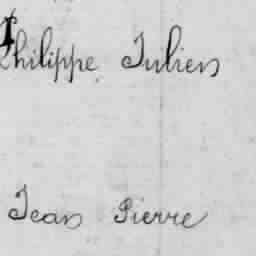 Philippe Julien
Jean Pierre